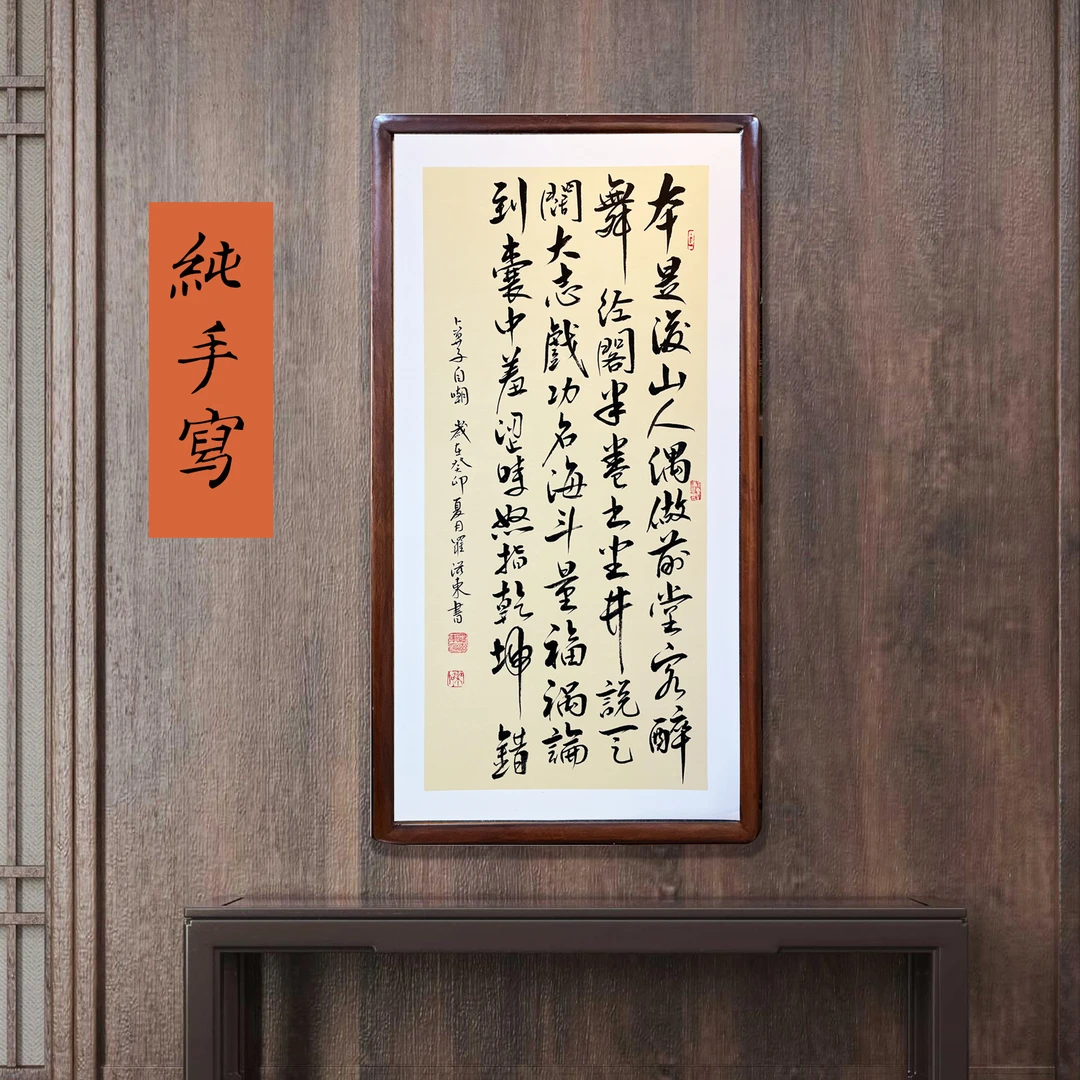 本是後山人偶做前堂客醉
舞经閣半卷书坐井説天
闊大志戲功名海斗量福禍論
到囊中羞涩時怒指乾坤錯
卜算子自嘲 歲在癸卯夏月羅滋東書
純手寫